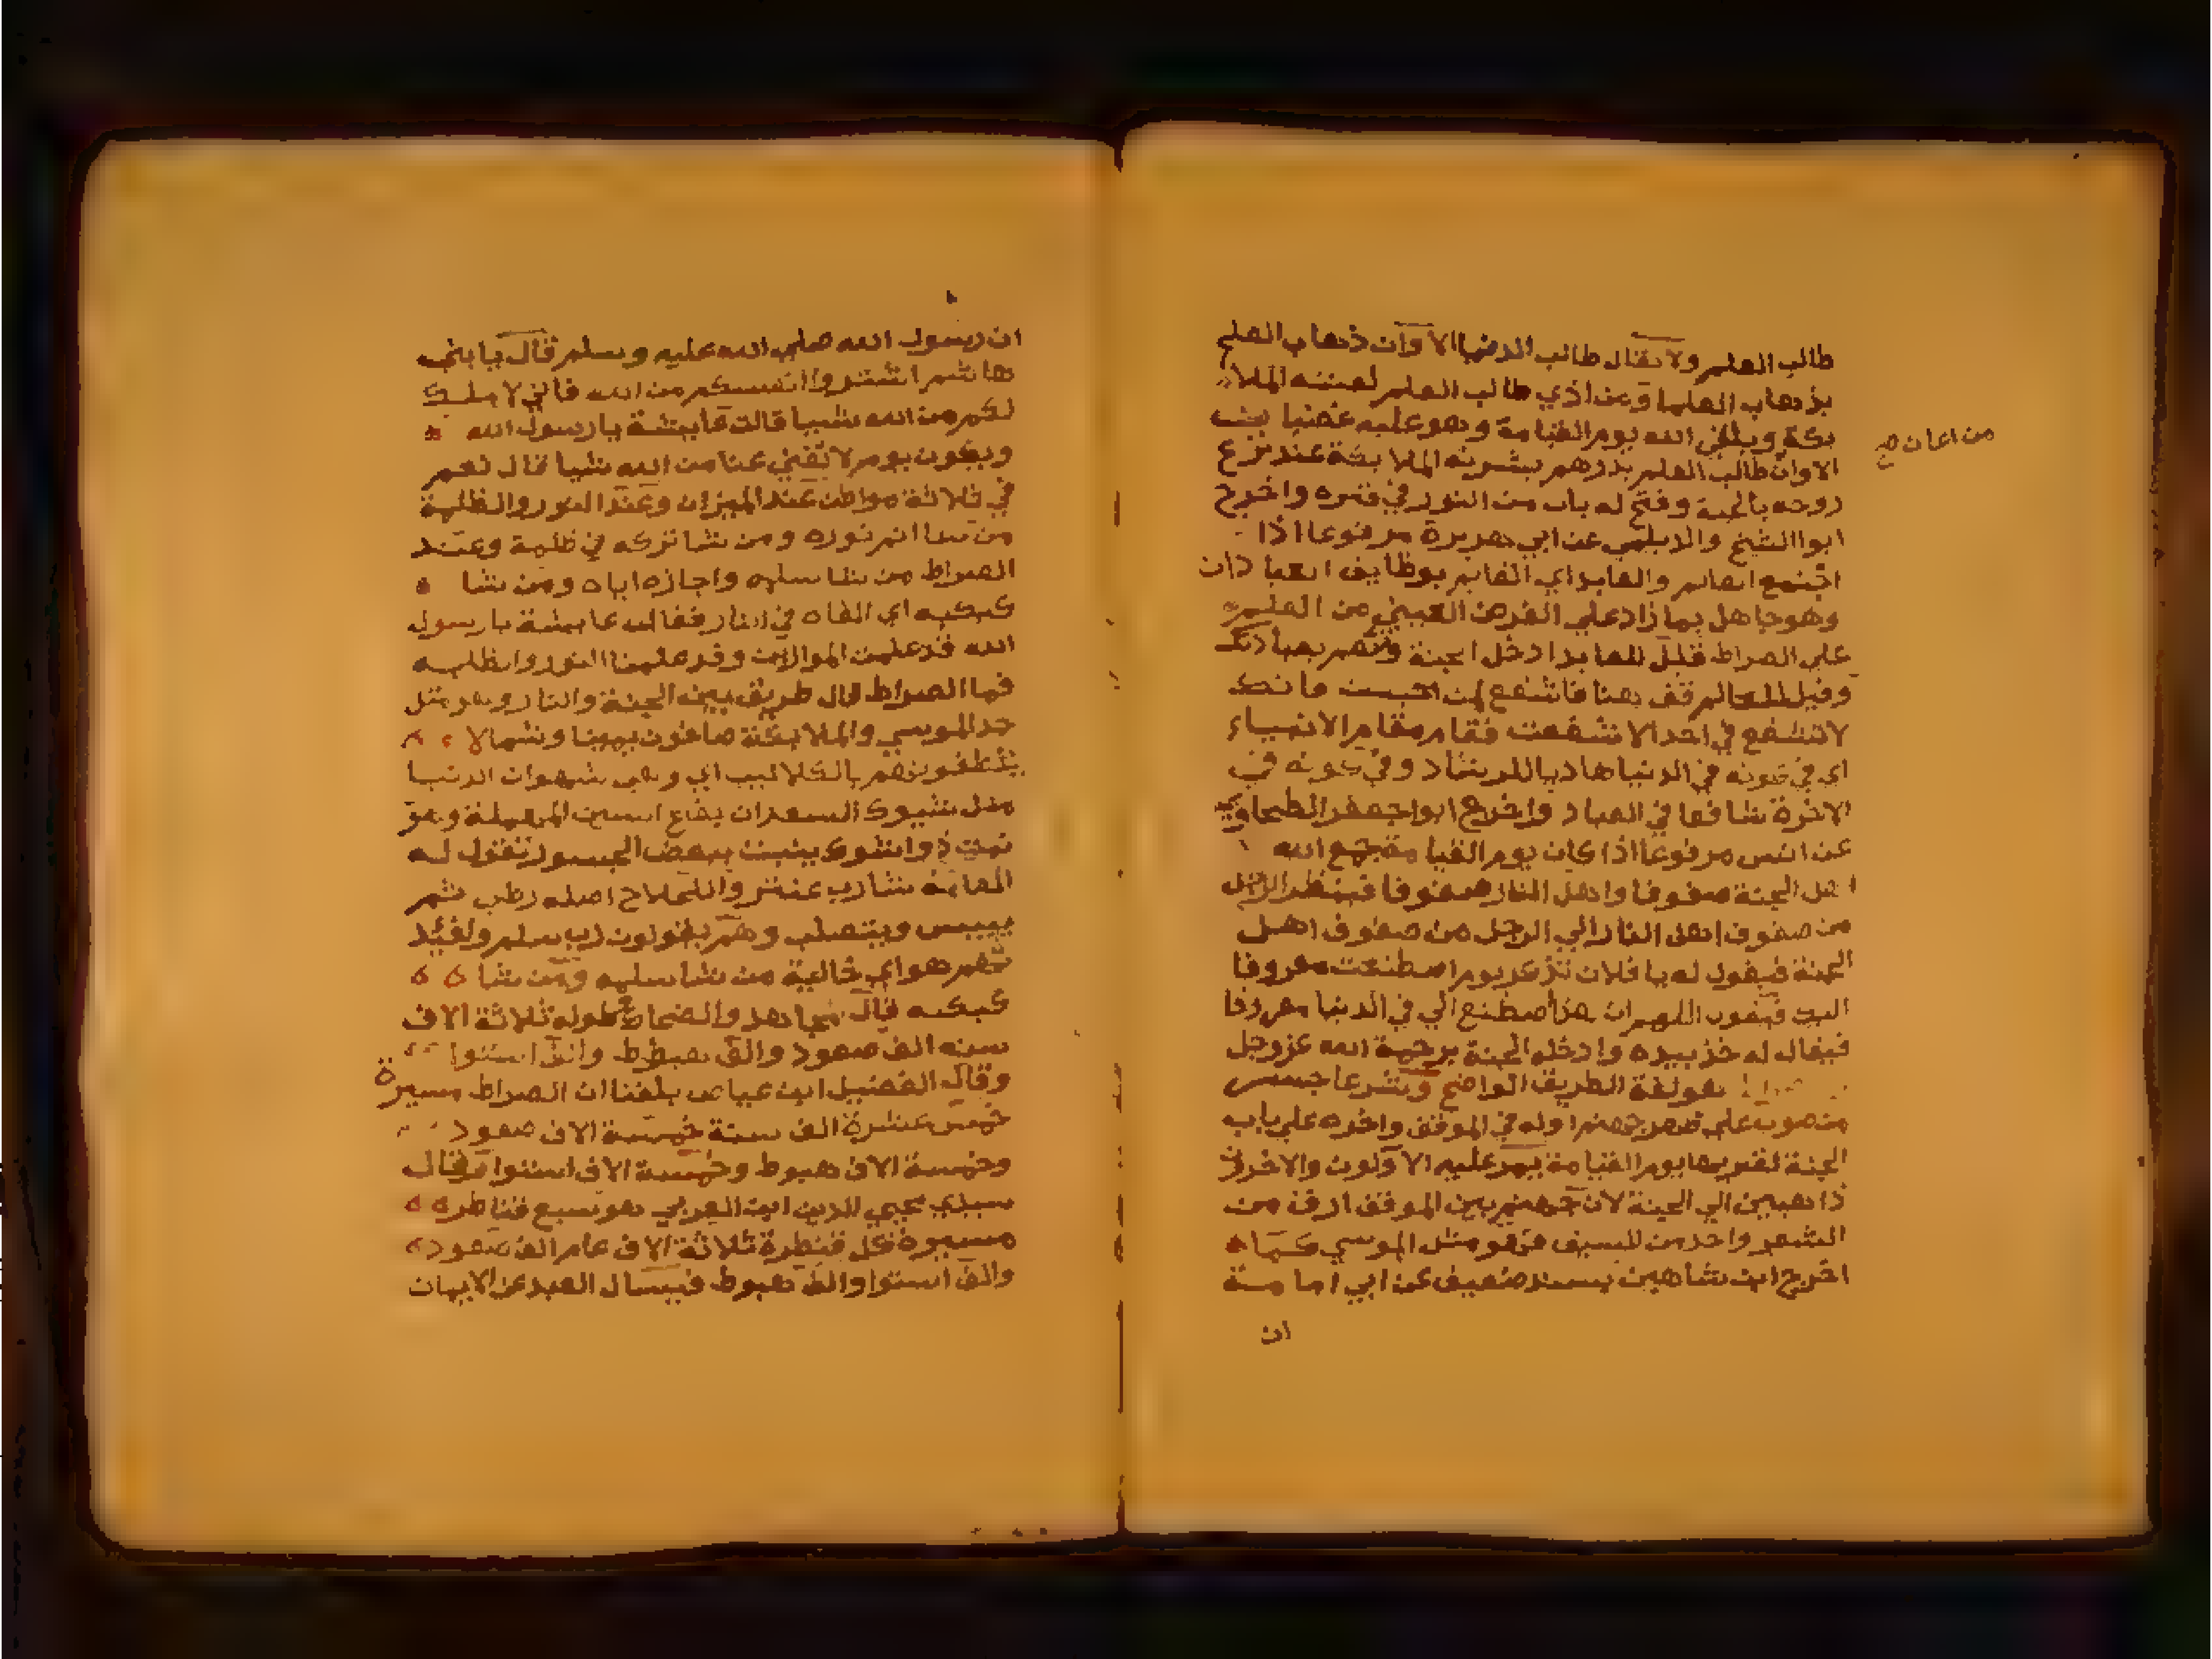 طالب العلم ولا يقال طالب الدنيا الا وان ذهاب العلم
بذهاب العلما ومن اذي طالب العلم لعنته الملا
يكة ويلقي الله يوم القيامة وهو عليه غضبا
من اعان صح
الا وان طالب العلم بدرهم بشرته الملايكة عند نزع
روحه بالجنة وفتح له باب من النور في قبره واخرج
ابوا الشيخ والديلمي عن ابي هريرة مرفوعا اذا
اجتمع العالم والعابد اي القايم بوظايف العبادات
وهو جاهل بما زاد علي الفرض العيني من العلم
علي الصراط قيل للعابد ادخل الجنة وتنعم بعبادتك
وقيل للعالم قف هنا فاشفع لمن احببت فانك
لا تشفع في احد الا شفعت فقام مقام الانبياء
اي في كونه في الدنيا هاديا للرشاد وفي كونه في
الاخرة شافعا في العباد واخرج ابوا جعفر الطحاوي
عن انس مرفوعا اذا كان يوم القيامة جمع الله
اهل الجنة صفوفا واهل النار صفوفا فينظر الرجل
من صفوف اهل النار الي الرجل من صفوف اهل
الجنة فيقول له يا فلان تذكر يوم اصطنعت معروفا
اليك فيقول اللهم ان هذا اصطنع الي في الدنيا معروفا
فيقال له خذ بيده وادخله الجنة برحمة الله عز وجل
هو لغة الطريق الواضح وشرعا جسر
منصوب علي ظهر جهنم اوله في الموقف واخره علي باب
الجنة لقربها يوم القيامة يمر عليه الاولون والاخرون
ذاهبين الي الجنة لان جهنم بين الموقف ادق من
الشعر واحد من السيف فهو مثل الموسي كما
اخرج ابن شاهين بسند ضعيف عن ابي امامة
ان
ان رسول الله صلي الله عليه وسلم قال يا بني
هاشم اشتروا انفسكم من الله فاني لا املك
لكم من الله شيا قالت عايشة يا رسول الله
ويكون يوم لا تغني عنا من الله شيا قال نعم
في ثلاثة مواطن عند الميزان وعند النور والظلمة
من شا اتم نوره ومن شا تركه في ظلمة وعند
الصراط من شا سلمه واجازه اياه ومن شا
كبكبه اي القاه في النار فقالت عايشة يا رسول
الله قد علمنا الموازين وقد علمنا النور والظلمه
فما الصراط قال طريق بين الجنة والنار وهو مثل
حد الموسي والملايكة صافون يمينا وشمالا
يخطفونهم بالكلاليب اي وهي شهوات الدنيا
مثل شوك السعدان بفتح السين المهملة وهو
نبت ذوا شوك ينبت ببعض الجسور تقول له
العامة شارب عنتر واللحلاح اصله رطب ثم
ييبس ويتصلب وهم يقولون رب سلم وافئد
تهم هوا اي خالية من شا سلمه ومن شا
كبكبه قال مجاهد والضحاك طوله ثلاثة الاف
سنه الف صعود والف هبوط والف استوا
وقال الفضيل ابن عياض بلغنا ان الصراط مسيرة
خمس عشرة الف سنة خمسة الاف صعود
وخمسة الاف هبوط وخمسة الاف استوا وقال
سيدي محيي الدين ابن العربي هو سبع قناطر
مسيرة كل قنطرة ثلاثة الاف عام الف صعود
والف استوا والف هبوط فيسال العبد عن الايمان